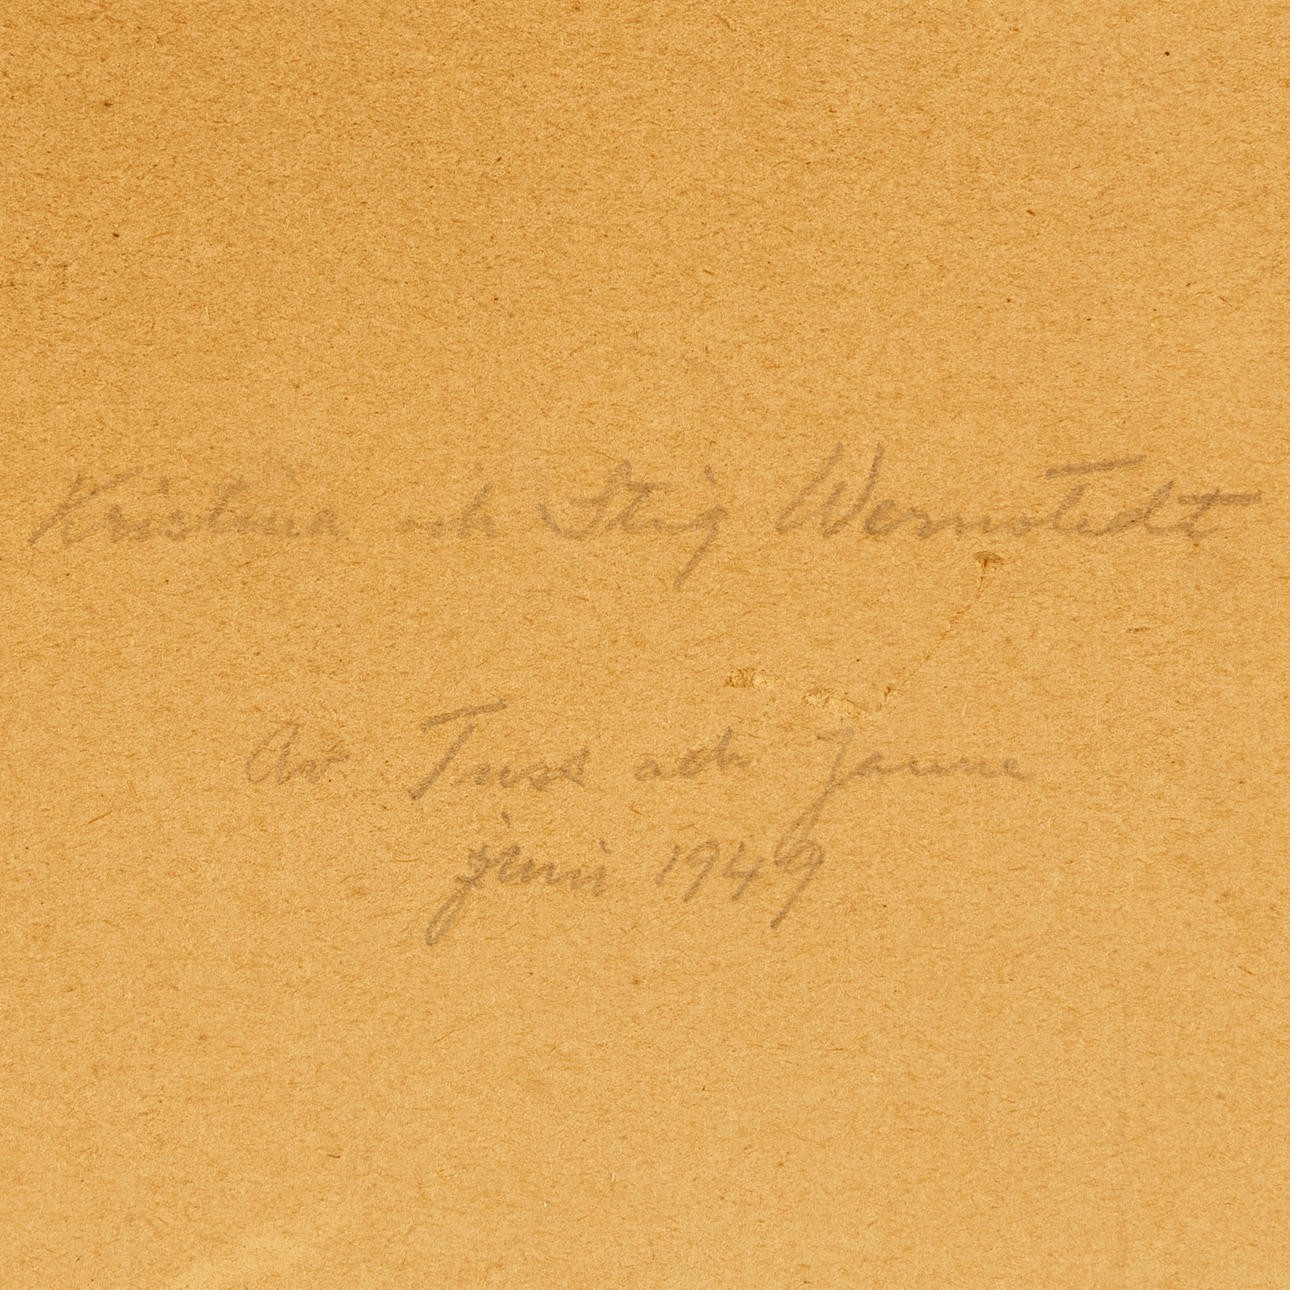 Kristina och Stig Wernstedt
Av och Janne
juni 1949